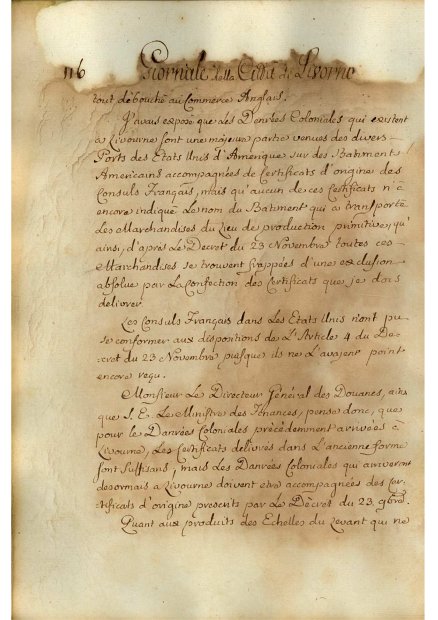 116 Giornale della Città di Livorno
tout débouché au Commerce Anglais.
J'avais exposé que les Denrées Coloniales qui existent
a Livourne sont une majeure partie venues des divers
Ports des Etats Unis d'Amerique sur des Batiments
Americains accompagnées de Certificats d'origine des
Consuls Français, mais qu'aucun de ces Certificats n'a
encore indiqué Le nom du Batiment qui a transporté
Les Marchandises du Lieu de production primitive, qu'
ainsi, d'après Le Decret du 23 Novembre toutes ces
Marchandises se trouvent frappées d'une exclusion
absolue par La Confection des Certificats que je dois
delivrer.
Les Consuls Français dans Les Etats Unis n'ont pu
se conformer aux dispositions de L'Article 4 du De-
cret du 23 Novembre puisque ils ne L'avajent point
encore reçu.
Monsieur Le Directeur Général des Douanes, ains
que S. E. Le Ministre des Finances, pense donc, que
pour le Danrées Coloniales précédemment arrivées à
Livourne, Les Certificats delivrés dans L'ancienne forme
sont suffisans; mais Les Danrées Coloniales qui arriveront
desormais a Livourne doivent etre accompagnées des Cer-
tificats d'origine prescrits par Le Décret du 23 9bre.
Quant aux produits des Echelles du Levant qui ne